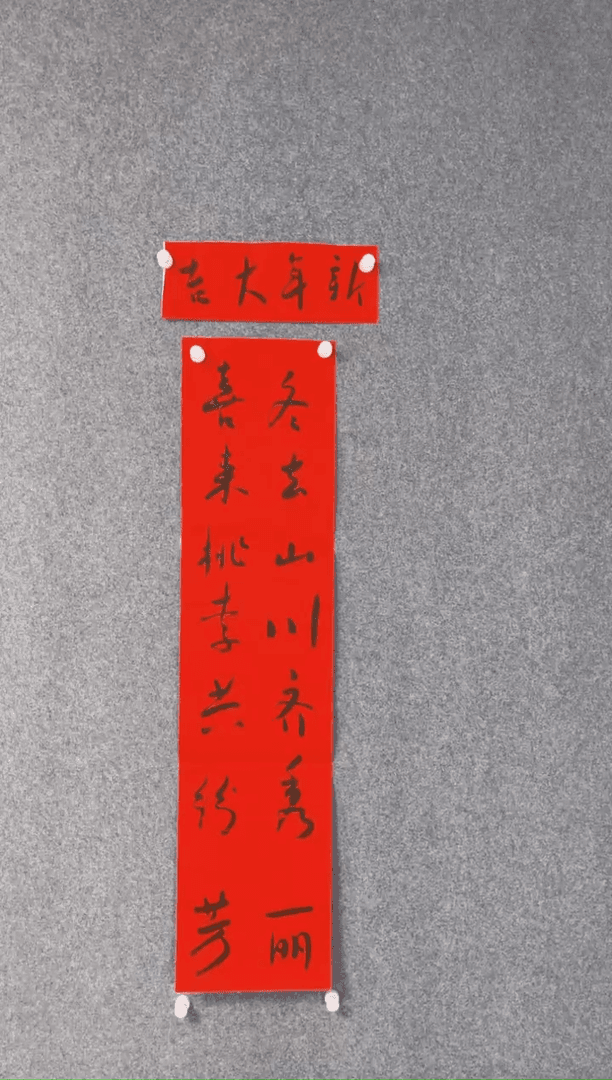 新年大吉
冬去山川齐秀丽
喜来桃李共纷芳